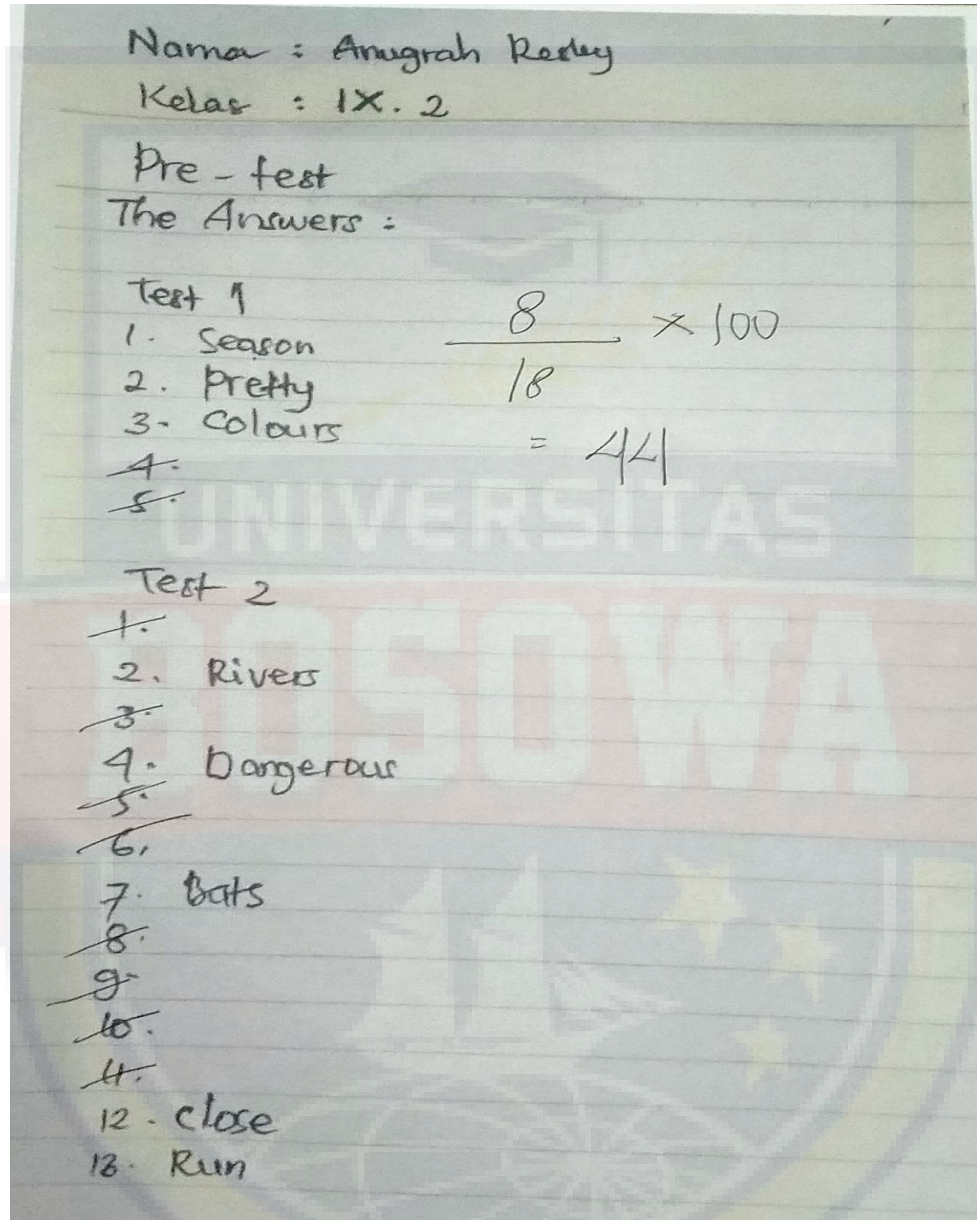 Nama : Anugrah Resky
Kelas : IX. 2
Pre - test
The Answers :
Test 1
1. Season
2. Pretty
3. Colours
4.
5.
8 / 18 × 100
= 44
Test 2
1.
2. Rivers
3.
4. Dangerous
5.
6.
7. Bats
8.
9.
10.
11.
12. close
13. Run
UNIVERSITAS
BOSOWA